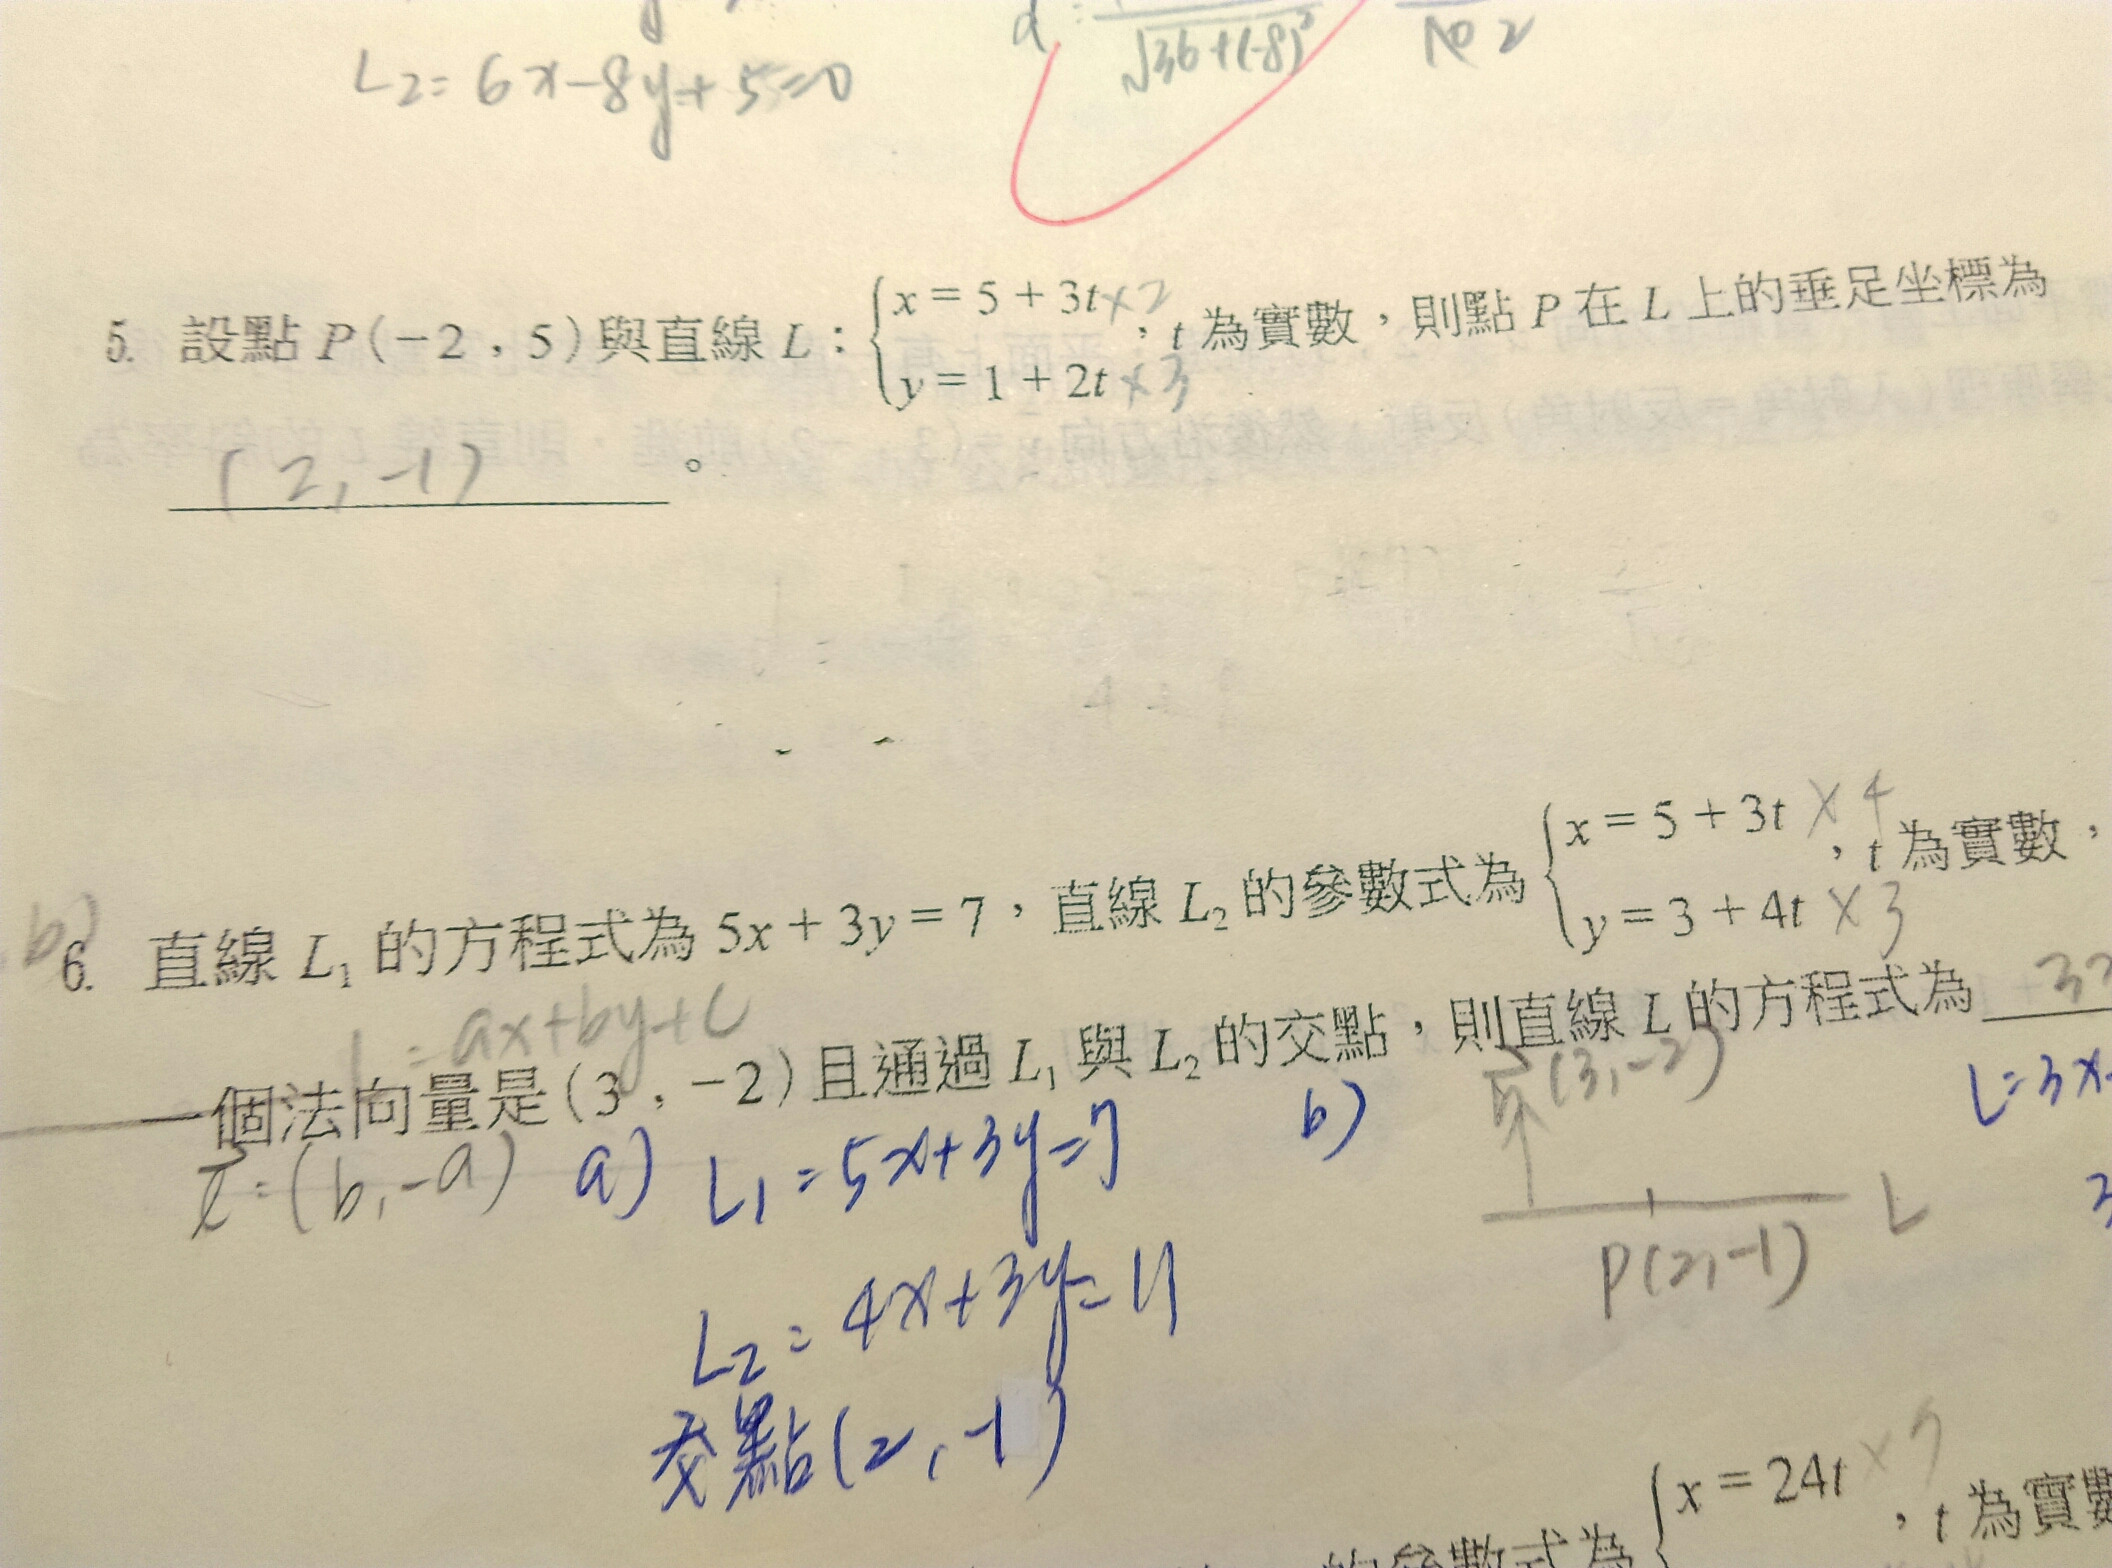 L2= 6x-8y+5=0
d= √36+(-8)² 10 2
5. 設點 P(-2，5)與直線 L：{x=5+3t ×2
y=1+2t ×3，t 為實數，則點 P 在 L 上的垂足坐標為
(2,-1)。
b)
6. 直線 L₁ 的方程式為 5x+3y=7，直線 L₂ 的參數式為 {x=5+3t ×4
y=3+4t ×3，t 為實數，
L=ax+by+c
一個法向量是(3，-2)且通過 L₁ 與 L₂ 的交點，則直線 L 的方程式為
(3,-2)
L=3x-
=(b,-a) a) L1=5x+3y=7 b)
L
P(2,-1)
L2=4x+3y=11
交點(2,-1)
{x=24t ×，t 為實數
的參數式為